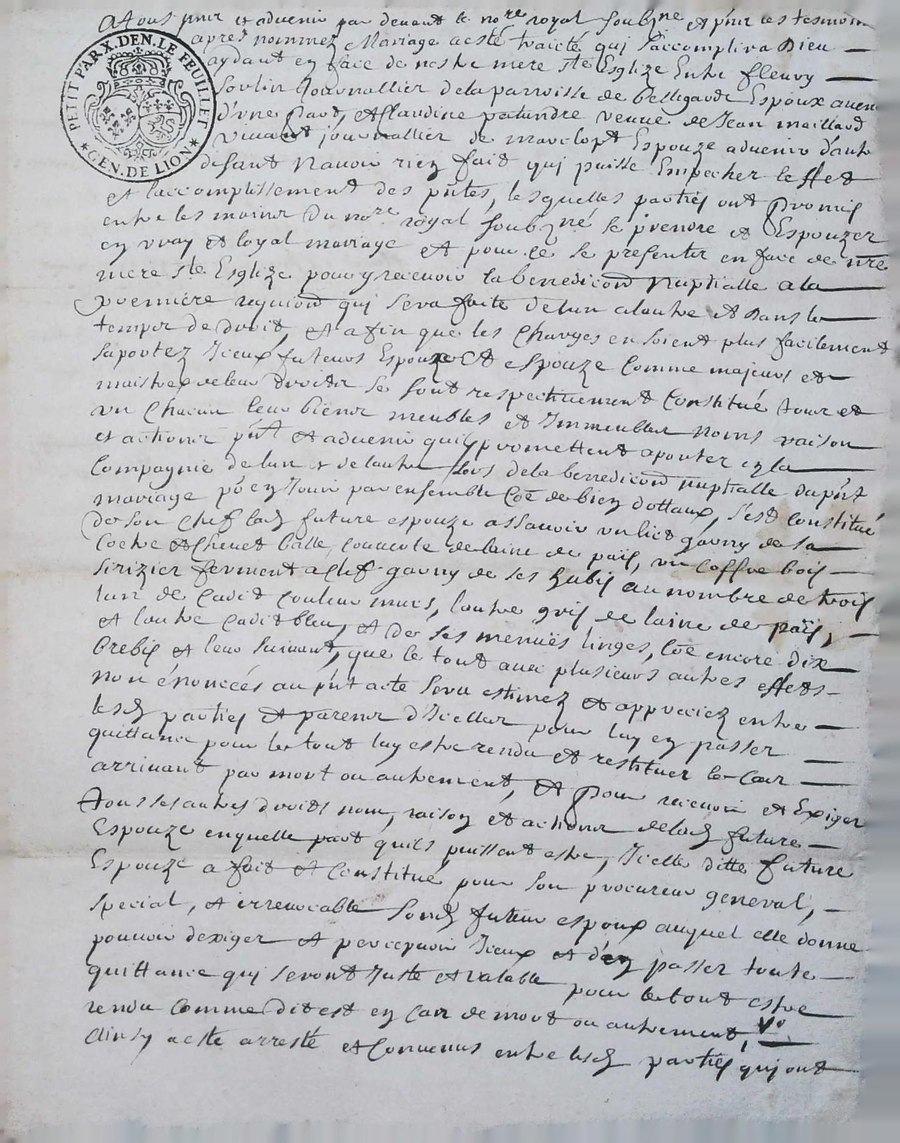 PETIT PAP.X.DEN.LE FEUILLET
GEN.DE LION
A tous pnts et advenir par devant le nore royal soubzne et pnts les tesmoins
apres nommez Mariage a esté traicté qui s'accomplira Dieu
aydant en face de nostre mere ste Esglize Entre fleury
journallier de la parroisse de bellegarde Espoux advenir
d'une part, et flaudine palandre venue de Jean maillard
vivant journallier de Espouze advenir d'autre
disant n'avoir rien fait qui puisse Empecher leffet
et laccomplissement des pntes, lesquelles parties ont promis
entre les mains du nore royal soubzné se prendre et Espouzer
en vray et loyal mariage et pour ce se presenter en face de nre
mere ste Esglize pour y recevoir la benediction nuptialle a la
premiere requiond qui sera faite de lun a lautre et dans le
temps de droit, et afin que les charges en soient plus facilement
suportez Jceux futeurs Espoux et espouze comme majeurs et
maistres de leur droits se sont respectivement constitué tous et
un chacun leur biens meubles et Jmmeubles noms raison
et actions pnt et advenir quils promettent aporter en la
compagnie de lun et de lautre lors de la benediction nuptialle du pnt
mariage po en jouir par ensemble coe de bien dottaux, s'est constitué
de son chef lad future espouze assavoir un lict garny de sa
coetre et chevet balle, couverte de laine de païs, un coffre bois
serizier ferment a clef garny de ses habis au nombre de trois
lun de cadit couleur murs, lautre gris de laine de païs,
et lautre cadit bleu, et de ses menuës linges, coe encore dix
brebis et leur suivant, que le tout aux plusieurs autres effets
non énoncées au pnt acte sera estimez et appreciez entre
lesd parties et parens d'Jcelles pour luy en passer
quittance pour le tout luy estre rendu et restituer le cas
arrivant par mort ou autrement, et pour recevoir et Exiger
tous ses autres droits nom, raison et actions de lad future
Espouze en quelle part quils puissent estre, Jcelle ditte future
Espouze a fait et constitué pour son procureur general,
special, et irrevocable sond futeur espoux auquel elle donne
pouvoir dexiger et percepvoir Jceux et d'en passer toute
quittance qui seront Juste et valable pour le tout estre
rendu comme dit est en cas de mort ou autrement,
ainsy a esté arresté et convenus entre lesd parties qui ont